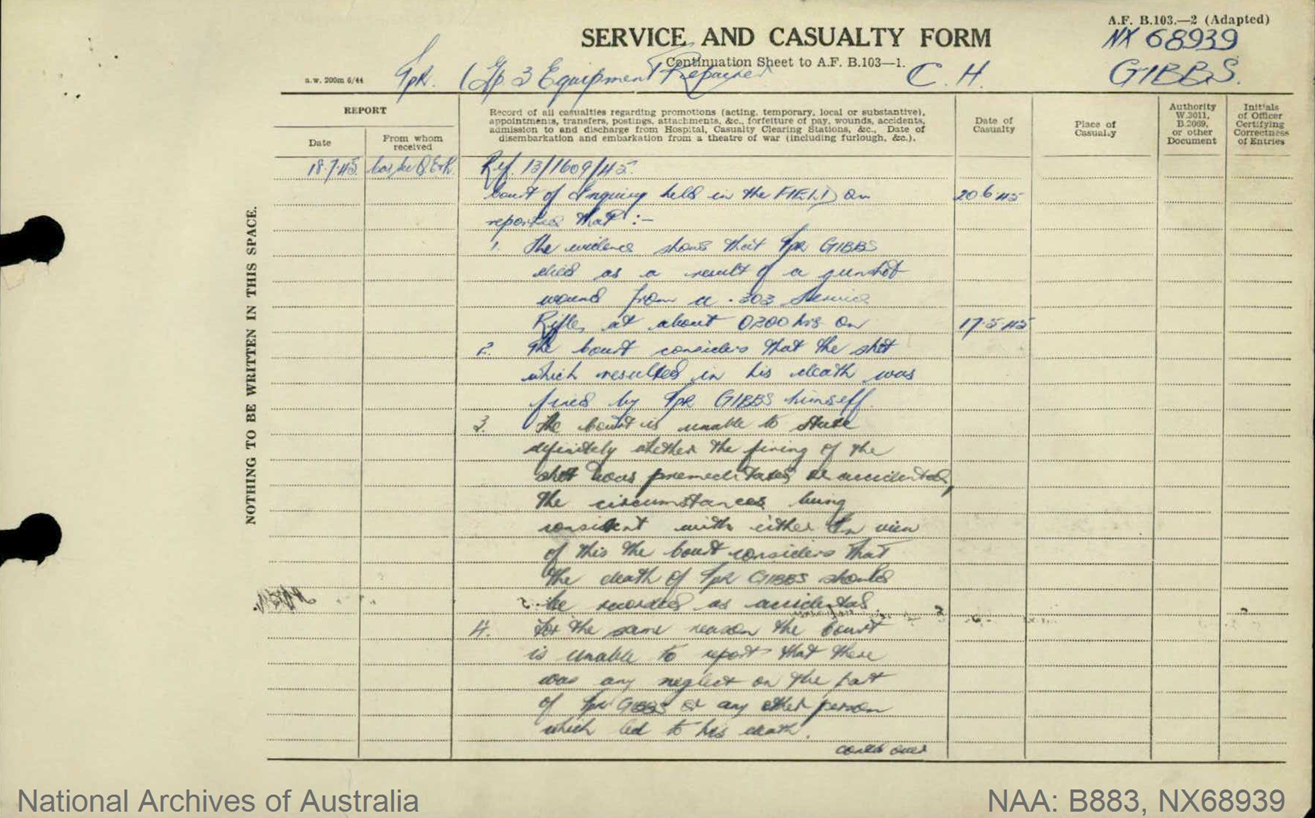 A.F. B.103.—2 (Adapted)
SERVICE AND CASUALTY FORM
NX 68939
Continuation Sheet to A.F. B.103—1.
a.w. 200m 6/44
Tpr. (Gp 3 Equipment Repairer
C. H.
GIBBS.
REPORT
Date
From whom received
Record of all casualties regarding promotions (acting, temporary, local or substantive),
appointments, transfers, postings, attachments, &c., forfeiture of pay, wounds, accidents,
admission to and discharge from Hospital, Casualty Clearing Stations, &c., Date of
disembarkation and embarkation from a theatre of war (including furlough, &c.).
Date of Casualty
Place of Casualty.
Authority W.3011, B.2069, or other Document
Initials of Officer Certifying Correctness of Entries
NOTHING TO BE WRITTEN IN THIS SPACE.
18.7.45. Ref. 13/1609/45.
Court of Enquiry held in the FIELD on 20 6 45
reported that :—
1. The evidence shows that Tpr GIBBS
died as a result of a gunshot
wound from a .303 Service
Rifle, at about 0200 hrs on 17.5.45
2. The Court considers that the shot
which resulted in his death was
fired by Tpr GIBBS himself.
3. The Court is unable to state
definitely whether the firing of the
shot was premeditated or accidental,
the circumstances being
consistent with either In view
of this the Court considers that
the death of Tpr GIBBS should
be recorded as accidental
4. For the same reason the Court
is unable to report that there
was any neglect on the part
of Tpr GIBBS or any other person
which led to his death.
contd over
National Archives of Australia
NAA: B883, NX68939